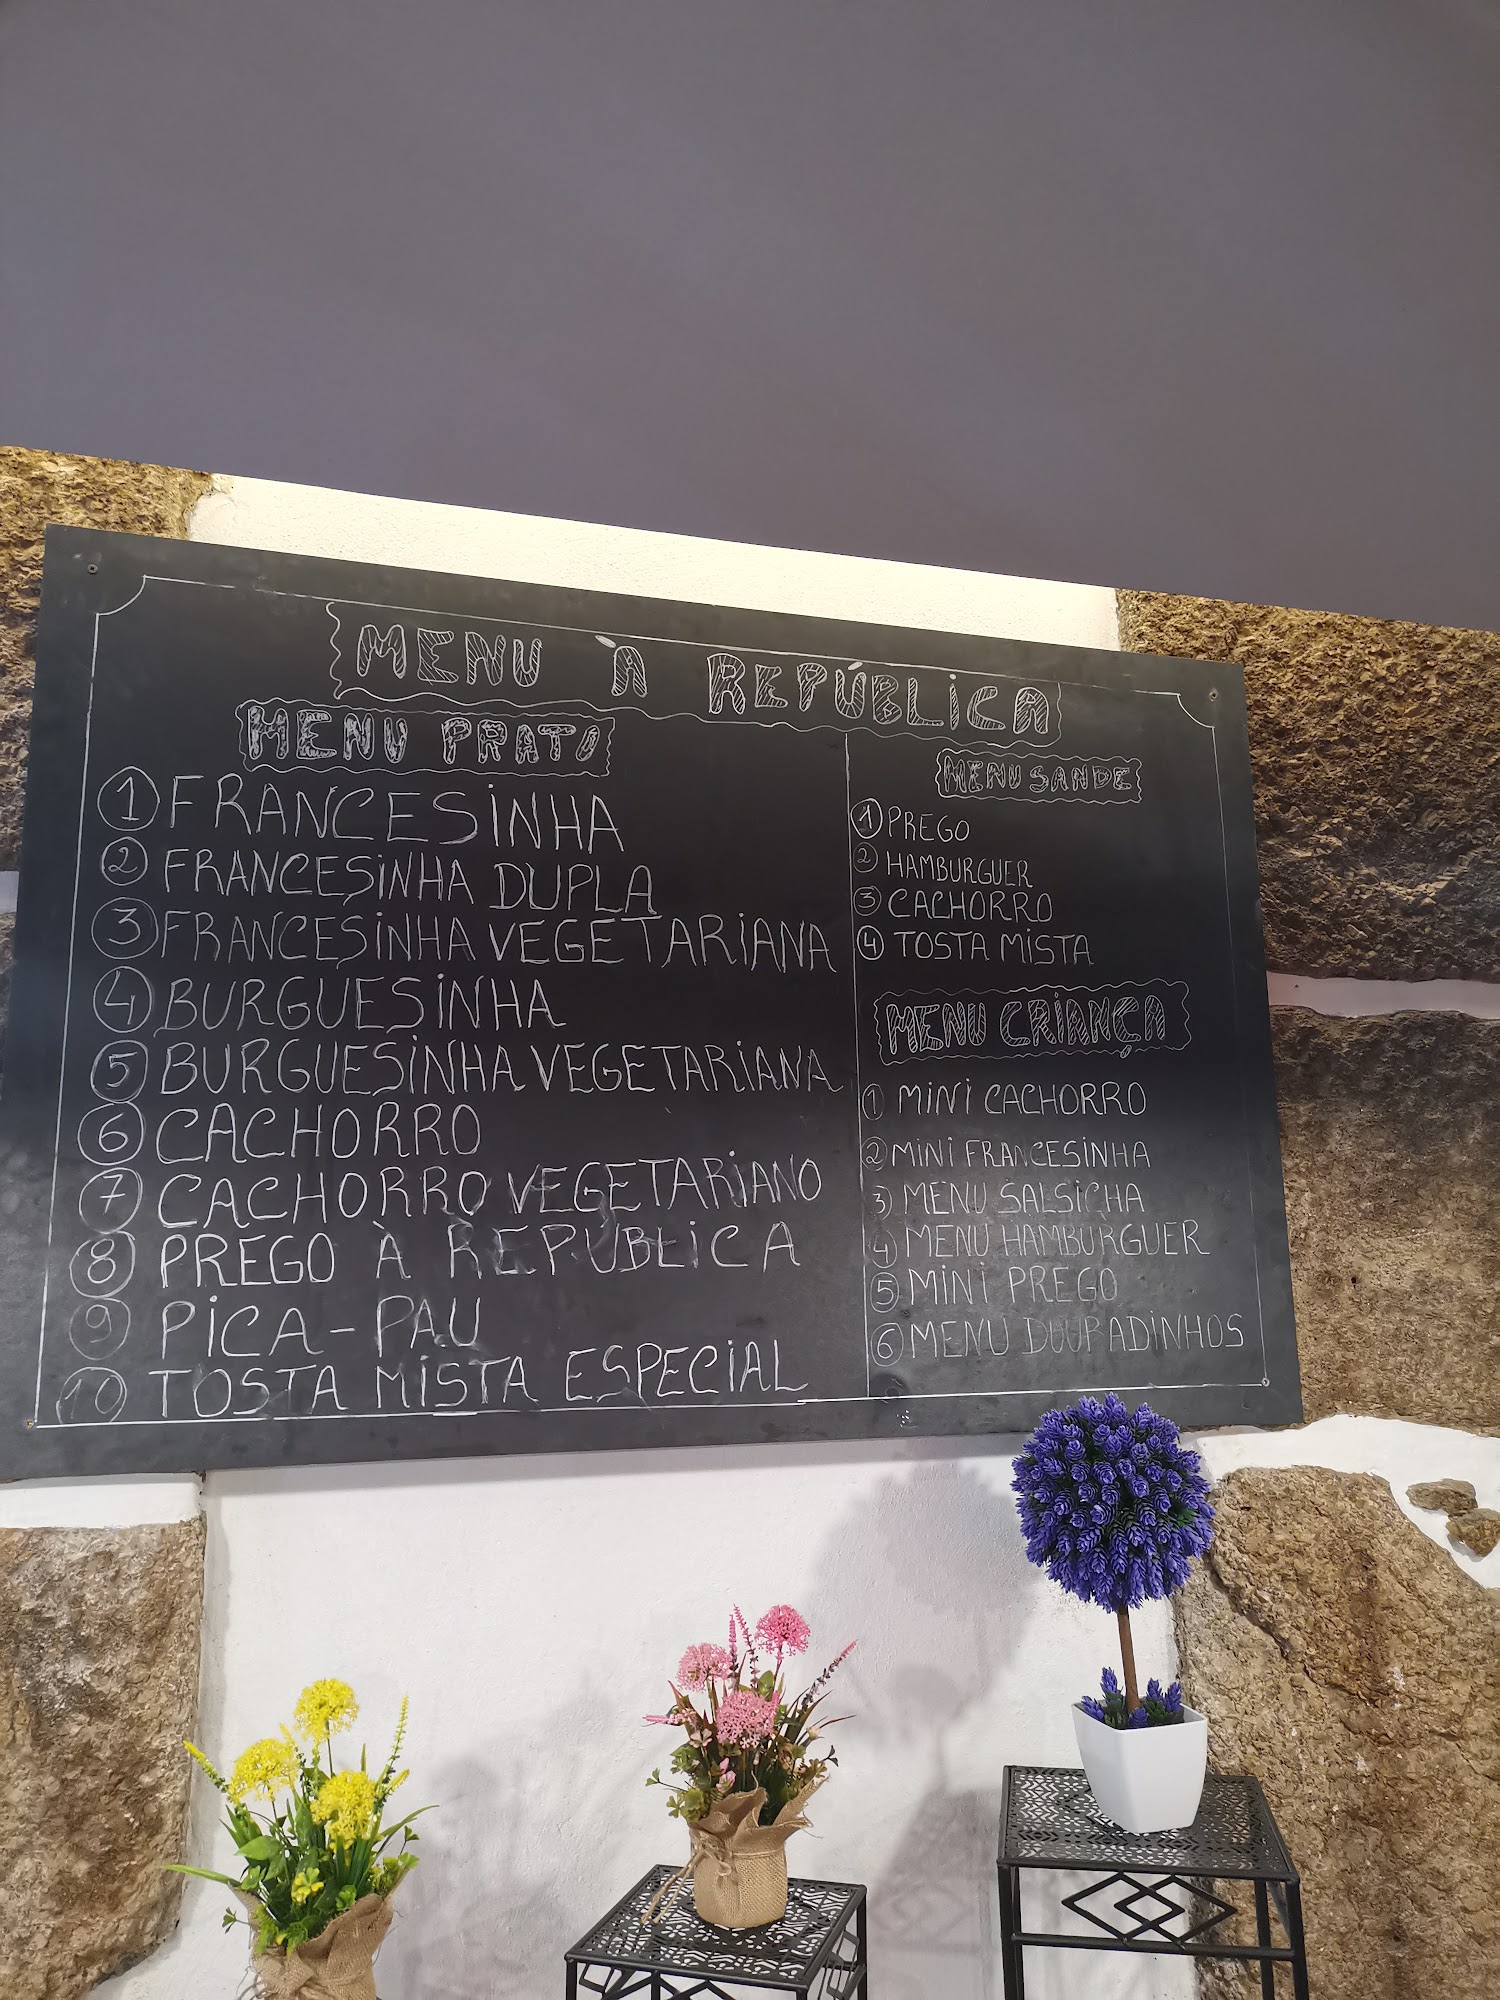 MENU À REPÚBLICA
MENU PRATO
1 FRANCESINHA
2 FRANCESINHA DUPLA
3 FRANCESINHA VEGETARIANA
4 BURGUESINHA
5 BURGUESINHA VEGETARIANA
6 CACHORRO
7 CACHORRO VEGETARIANO
8 PREGO À REPÚBLICA
9 PICA-PAU
10 TOSTA MISTA ESPECIAL
MENU SANDE
1 PREGO
2 HAMBURGUER
3 CACHORRO
4 TOSTA MISTA
MENU CRIANÇA
1 MINI CACHORRO
2 MINI FRANCESINHA
3 MENU SALSICHA
4 MENU HAMBURGUER
5 MINI PREGO
6 MENU DOURADINHOS